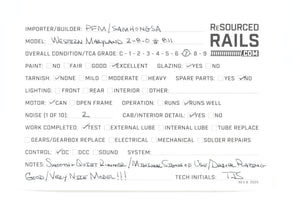 IMPORTER/BUILDER: PFM/SAMHONGSA
RESOURCED RAILS .COM
MODEL: WESTERN MARYLAND 2-8-0 # 811
OVERALL CONDITION/TCA GRADE: C-1-2-3-4-5-6-7-8-9
PAINT: NO FAIR GOOD ✓EXCELLENT GLAZING: ✓YES NO
TARNISH: ✓NONE MILD MODERATE HEAVY SPARE PARTS: YES ✓NO
LIGHTING: FRONT REAR INTERIOR OTHER:
MOTOR: ✓CAN OPEN FRAME OPERATION: RUNS ✓RUNS WELL
NOISE (1 OF 10): 2 CAB/INTERIOR DETAIL: ✓YES NO
WORK COMPLETED: ✓TEST EXTERNAL LUBE INTERNAL LUBE TUBE REPLACE
GEARS/GEARBOX REPLACE ELECTRICAL MECHANICAL SOLDER REPAIRS
CONTROL: ✓DC DCC SOUND SYSTEM:
NOTES: SMOOTH & QUIET RUNNER/
GOOD/VERY NICE MODEL!!! TECH INITIALS: TJS